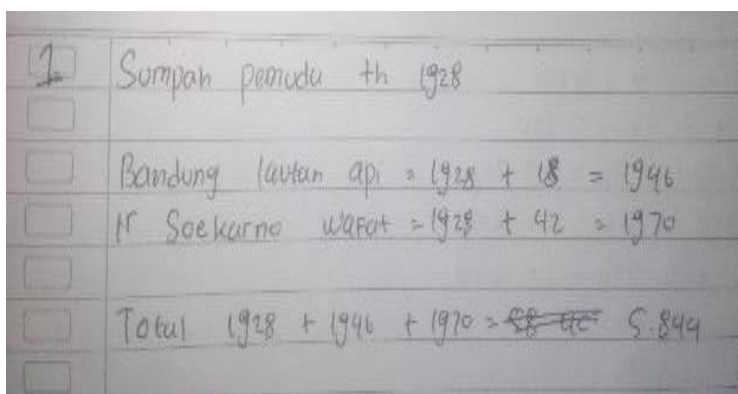 1 Sumpah pemuda th 1928
Bandung lautan api = 1928 + 18 = 1946
Ir Soekarno wafat = 1928 + 42 = 1970
Total 1928 + 1946 + 1970 = 5.844